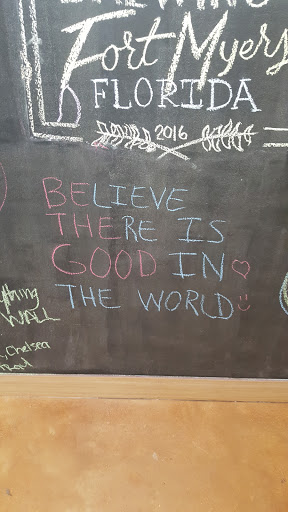 Fort Myers
FLORIDA
2016
BELIEVE
THERE IS
GOOD IN
THE WORLD
WALL
Chelsea